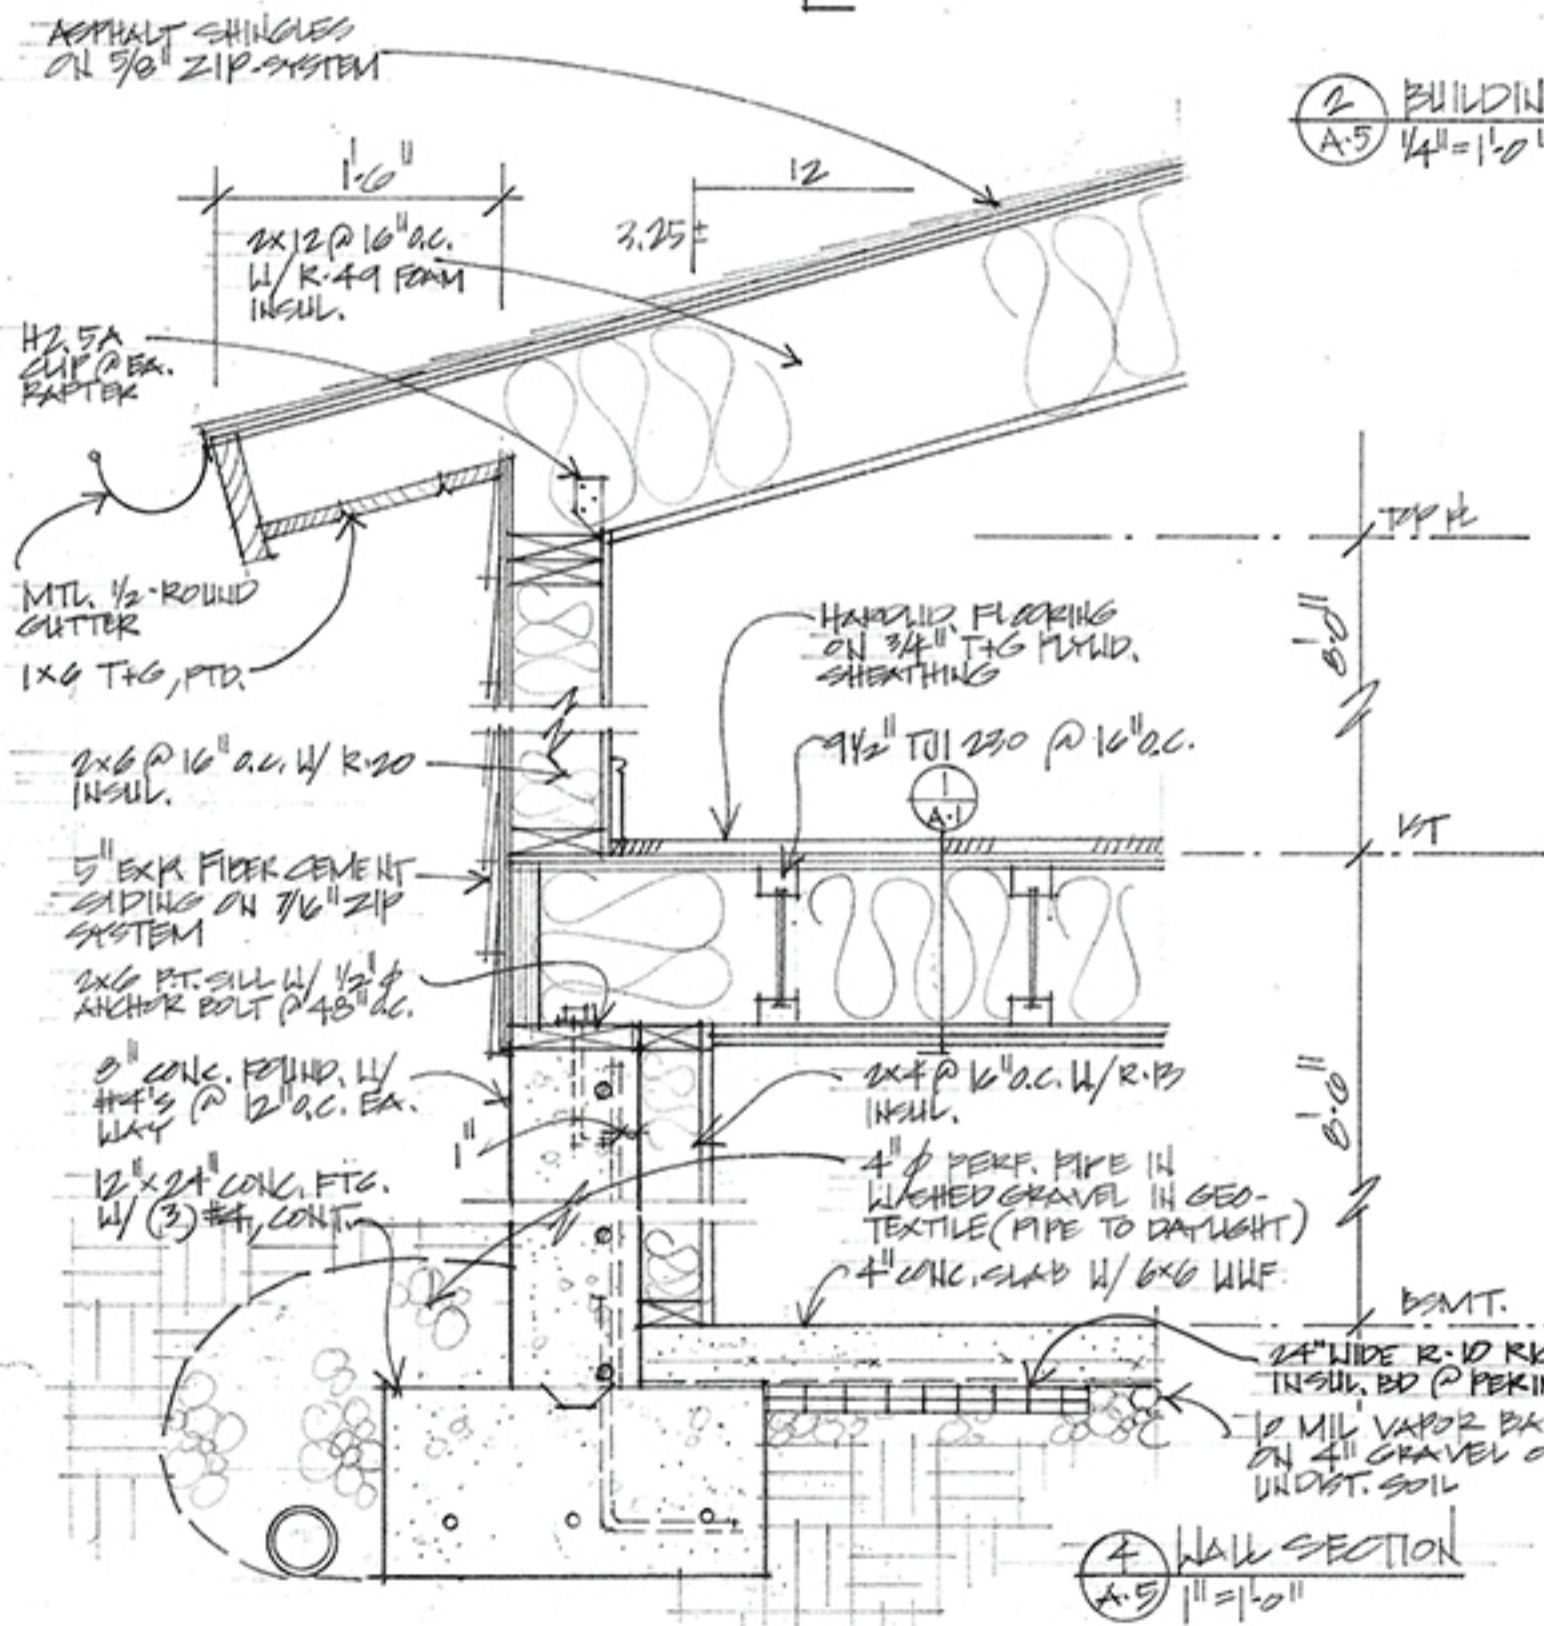 ASPHALT SHINGLES
ON 5/8" ZIP-SYSTEM
2
A.5
BUILDIN
1/4" = 1'-0"
1'-6"
12
3.25±
2x12 @ 16" O.C.
W/ R-49 FOAM
INSUL.
H2.5A
CLIP @ EA.
RAFTER
MTL. 1/2-ROUND
GUTTER
1x6 T+G, PTD.
TOP PL
HARDWD. FLOORING
ON 3/4" T+G PLYWD.
SHEATHING
8'-0"
2x6 @ 16" O.C. W/ R-20
INSUL.
9 1/2" TJI 230 @ 16" O.C.
1
A.1
1ST
5" EXP. FIBER CEMENT
SIDING ON 7/16" ZIP
SYSTEM
2x6 P.T. SILL W/ 1/2" φ
ANCHOR BOLT @ 48" O.C.
8" CONC. FOUND. W/
#4'S @ 12" O.C. EA.
WAY
1"
2x4 @ 16" O.C. W/ R-13
INSUL.
8'-0"
12" x 24" CONC. FTG.
W/ (3) #4, CONT.
4" φ PERF. PIPE IN
WASHED GRAVEL IN GEO-
TEXTILE (PIPE TO DAYLIGHT)
4" CONC. SLAB W/ 6x6 WWF
BSMT.
24" WIDE R-10 RIG
INSUL. BD @ PERIM
10 MIL VAPOR BA
ON 4" GRAVEL O
UNDIST. SOIL
4
A.5
WALL SECTION
1" = 1'-0"